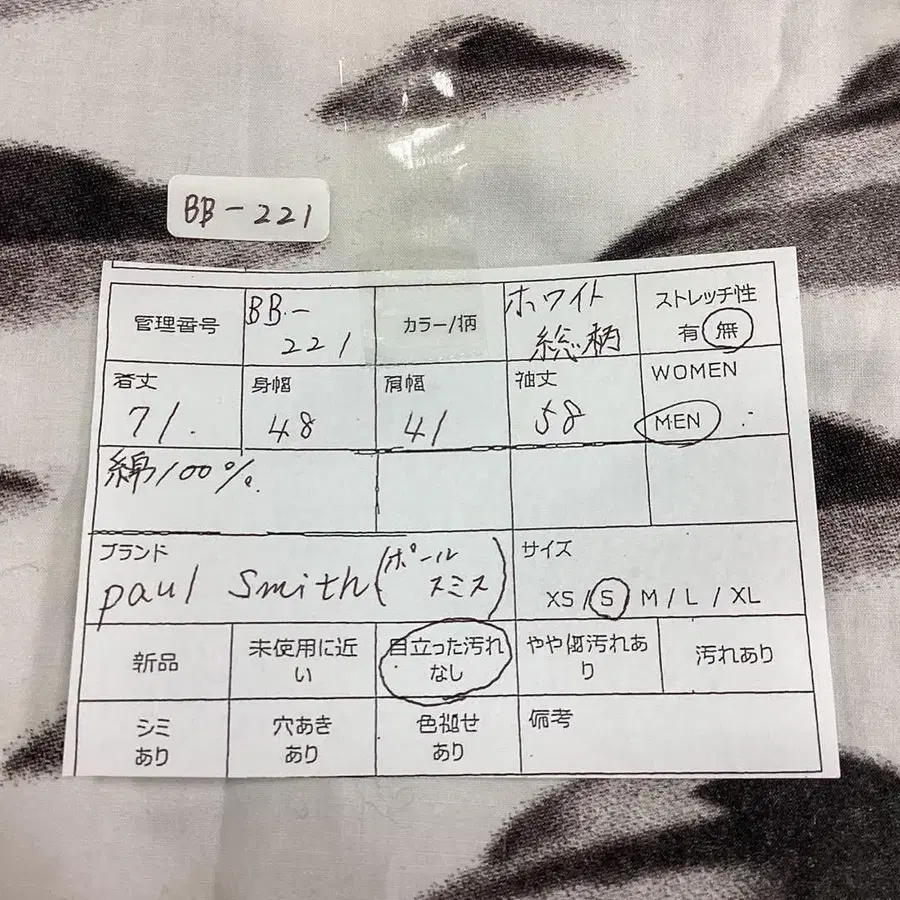 BB-221
管理番号
BB-
221
カラー/柄
ホワイト
総柄
ストレッチ性
有 無
着丈
71.
身幅
48
肩幅
41
袖丈
58
WOMEN
MEN
綿100%.
ブランド
paul Smith (ポール
スミス)
サイズ
XS / S / M / L / XL
新品
未使用に近
い
目立った汚れ
なし
やや傷汚れあ
り
汚れあり
シミ
あり
穴あき
あり
色褪せ
あり
備考